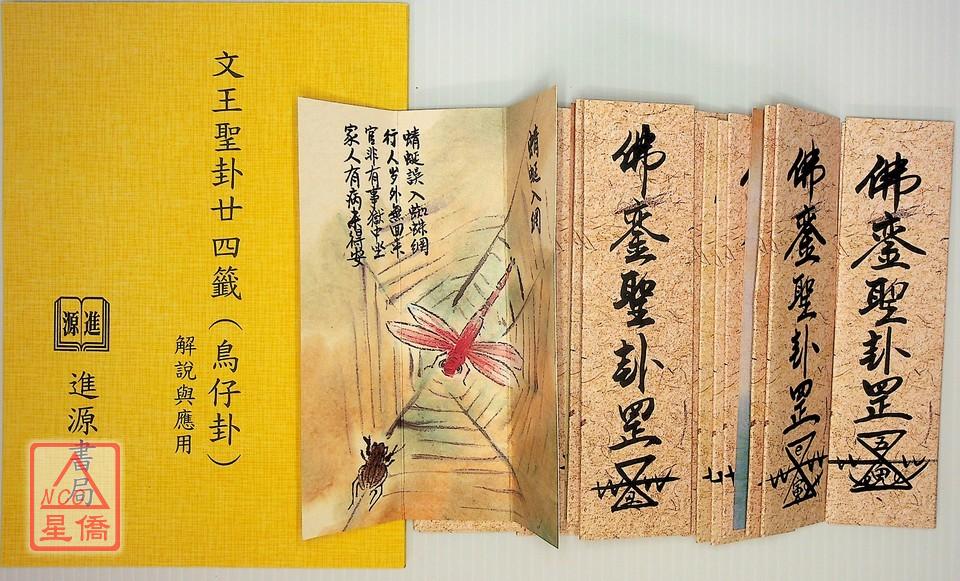 文王聖卦廿四籤（鳥仔卦）
解說與應用
進源
進源書局
NCC
星僑
蜻蜓入網
蜻蜓誤入蜘蛛網
行人岁外無回来
官非有事獄中坐
家人有病未得安
佛鑾聖卦罡
佛鑾聖卦罡
佛鑾聖卦罡